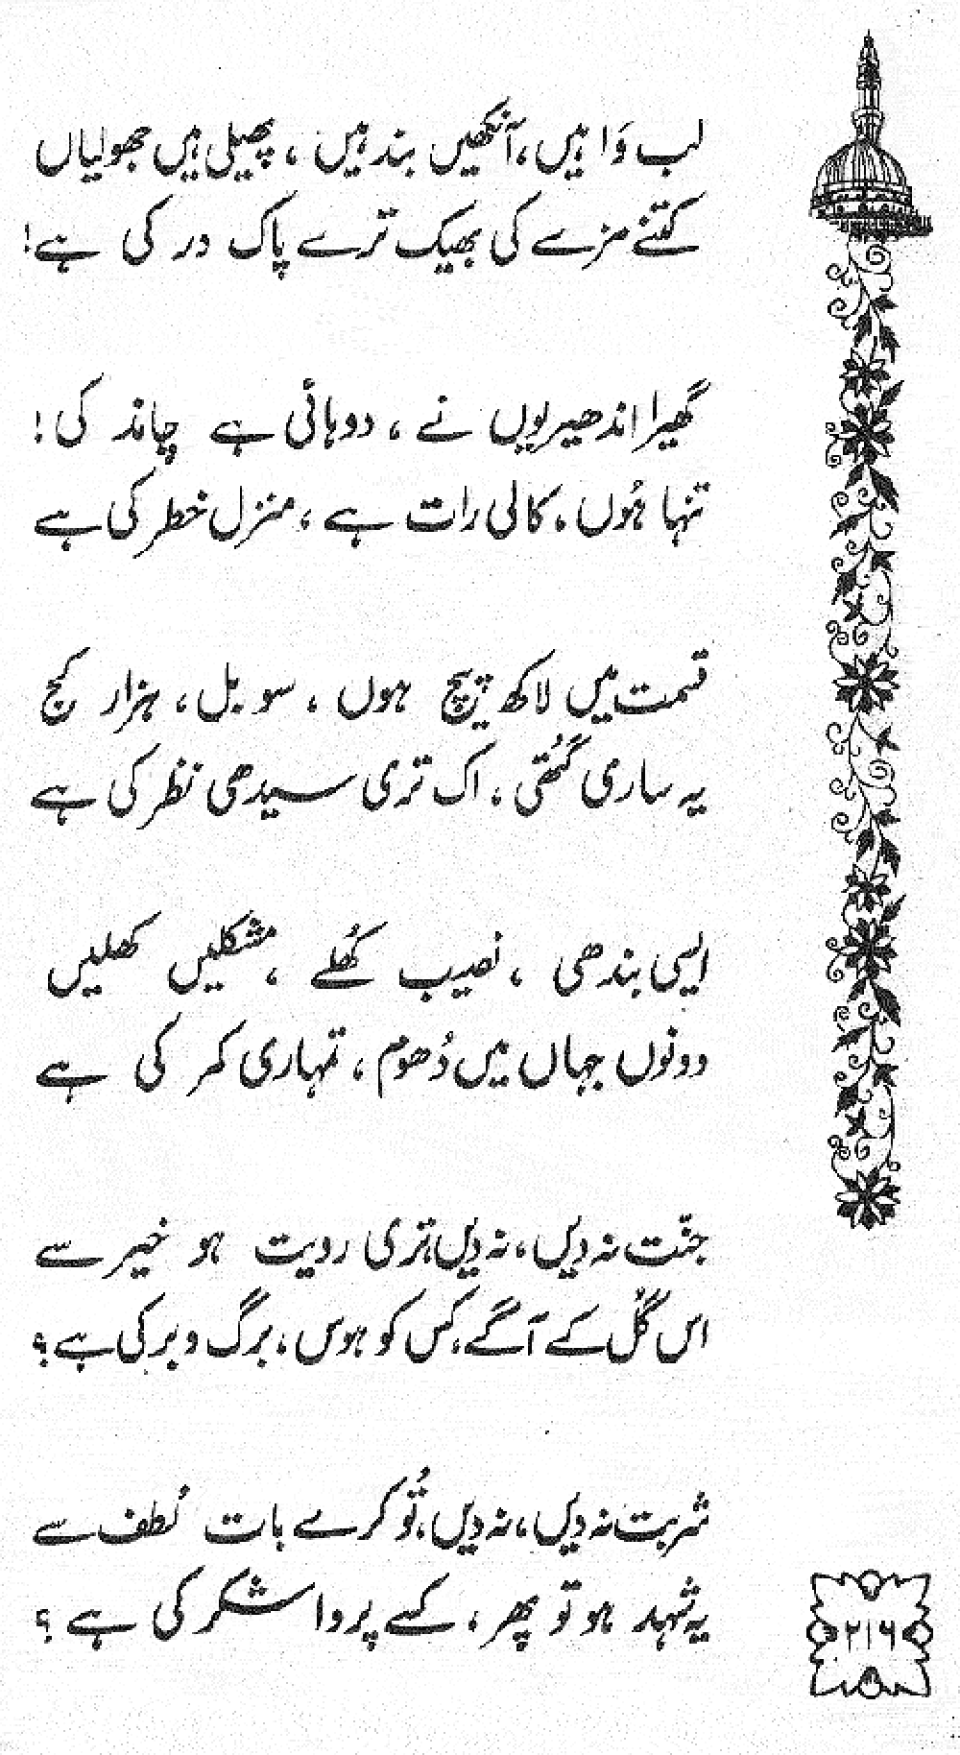 لب وَا ہیں، آنکھیں بند ہیں، پھیلی ہیں جھولیاں
کتنے مزے کی بھیک ترے پاک در کی ہے!
گھیرا اندھیریوں نے، دوہائی ہے چاند کی!
تنہا ہُوں، کالی رات ہے، منزل خطر کی ہے
قسمت میں لاکھ پیچ ہوں، سو بل، ہزار کج
یہ ساری گُتھی، اک تری سیدھی نظر کی ہے
ایسی بندھی، نصیب کُھلے، مشکلیں کھلیں
دونوں جہاں میں دُھوم، تمہاری کمر کی ہے
جنّت نہ دیں، نہ دیں، تری رویت ہو خیر سے
اس گُل کے آگے، کس کو ہوس، برگ و بر کی ہے؟
شربت نہ دیں، نہ دیں، تُو کرے بات لُطف سے
یہ شہد ہو تو پھر، کسے پروا شکر کی ہے؟
۲۱۶